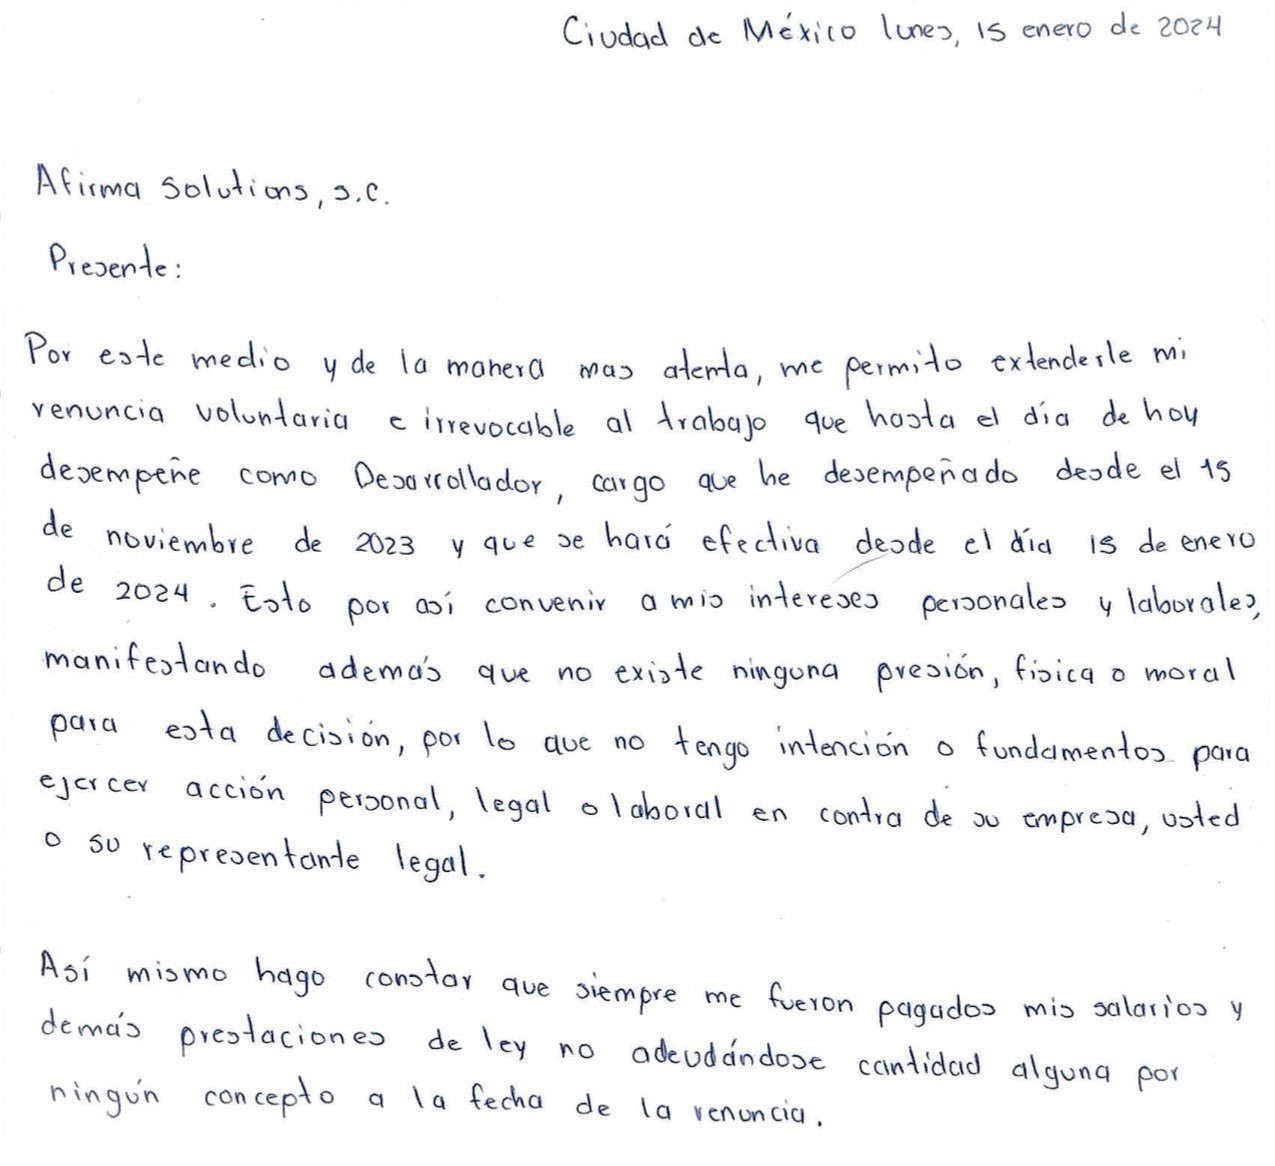 Ciudad de México lunes, 15 enero de 2024
Afirma Solutions, S.C.
Presente:
Por este medio y de la manera mas atenta, me permito extenderle mi
renuncia voluntaria e irrevocable al trabajo que hasta el día de hoy
desempeñe como Desarrollador, cargo que he desempeñado desde el 15
de noviembre de 2023 y que se hará efectiva desde el día 15 de enero
de 2024. Esto por así convenir a mis intereses personales y laborales,
manifestando además que no existe ninguna presión, física o moral
para esta decisión, por lo que no tengo intención o fundamentos para
ejercer acción personal, legal o laboral en contra de su empresa, usted
o su representante legal.
Así mismo hago constar que siempre me fueron pagados mis salarios y
demás prestaciones de ley no adeudándose cantidad alguna por
ningún concepto a la fecha de la renuncia.